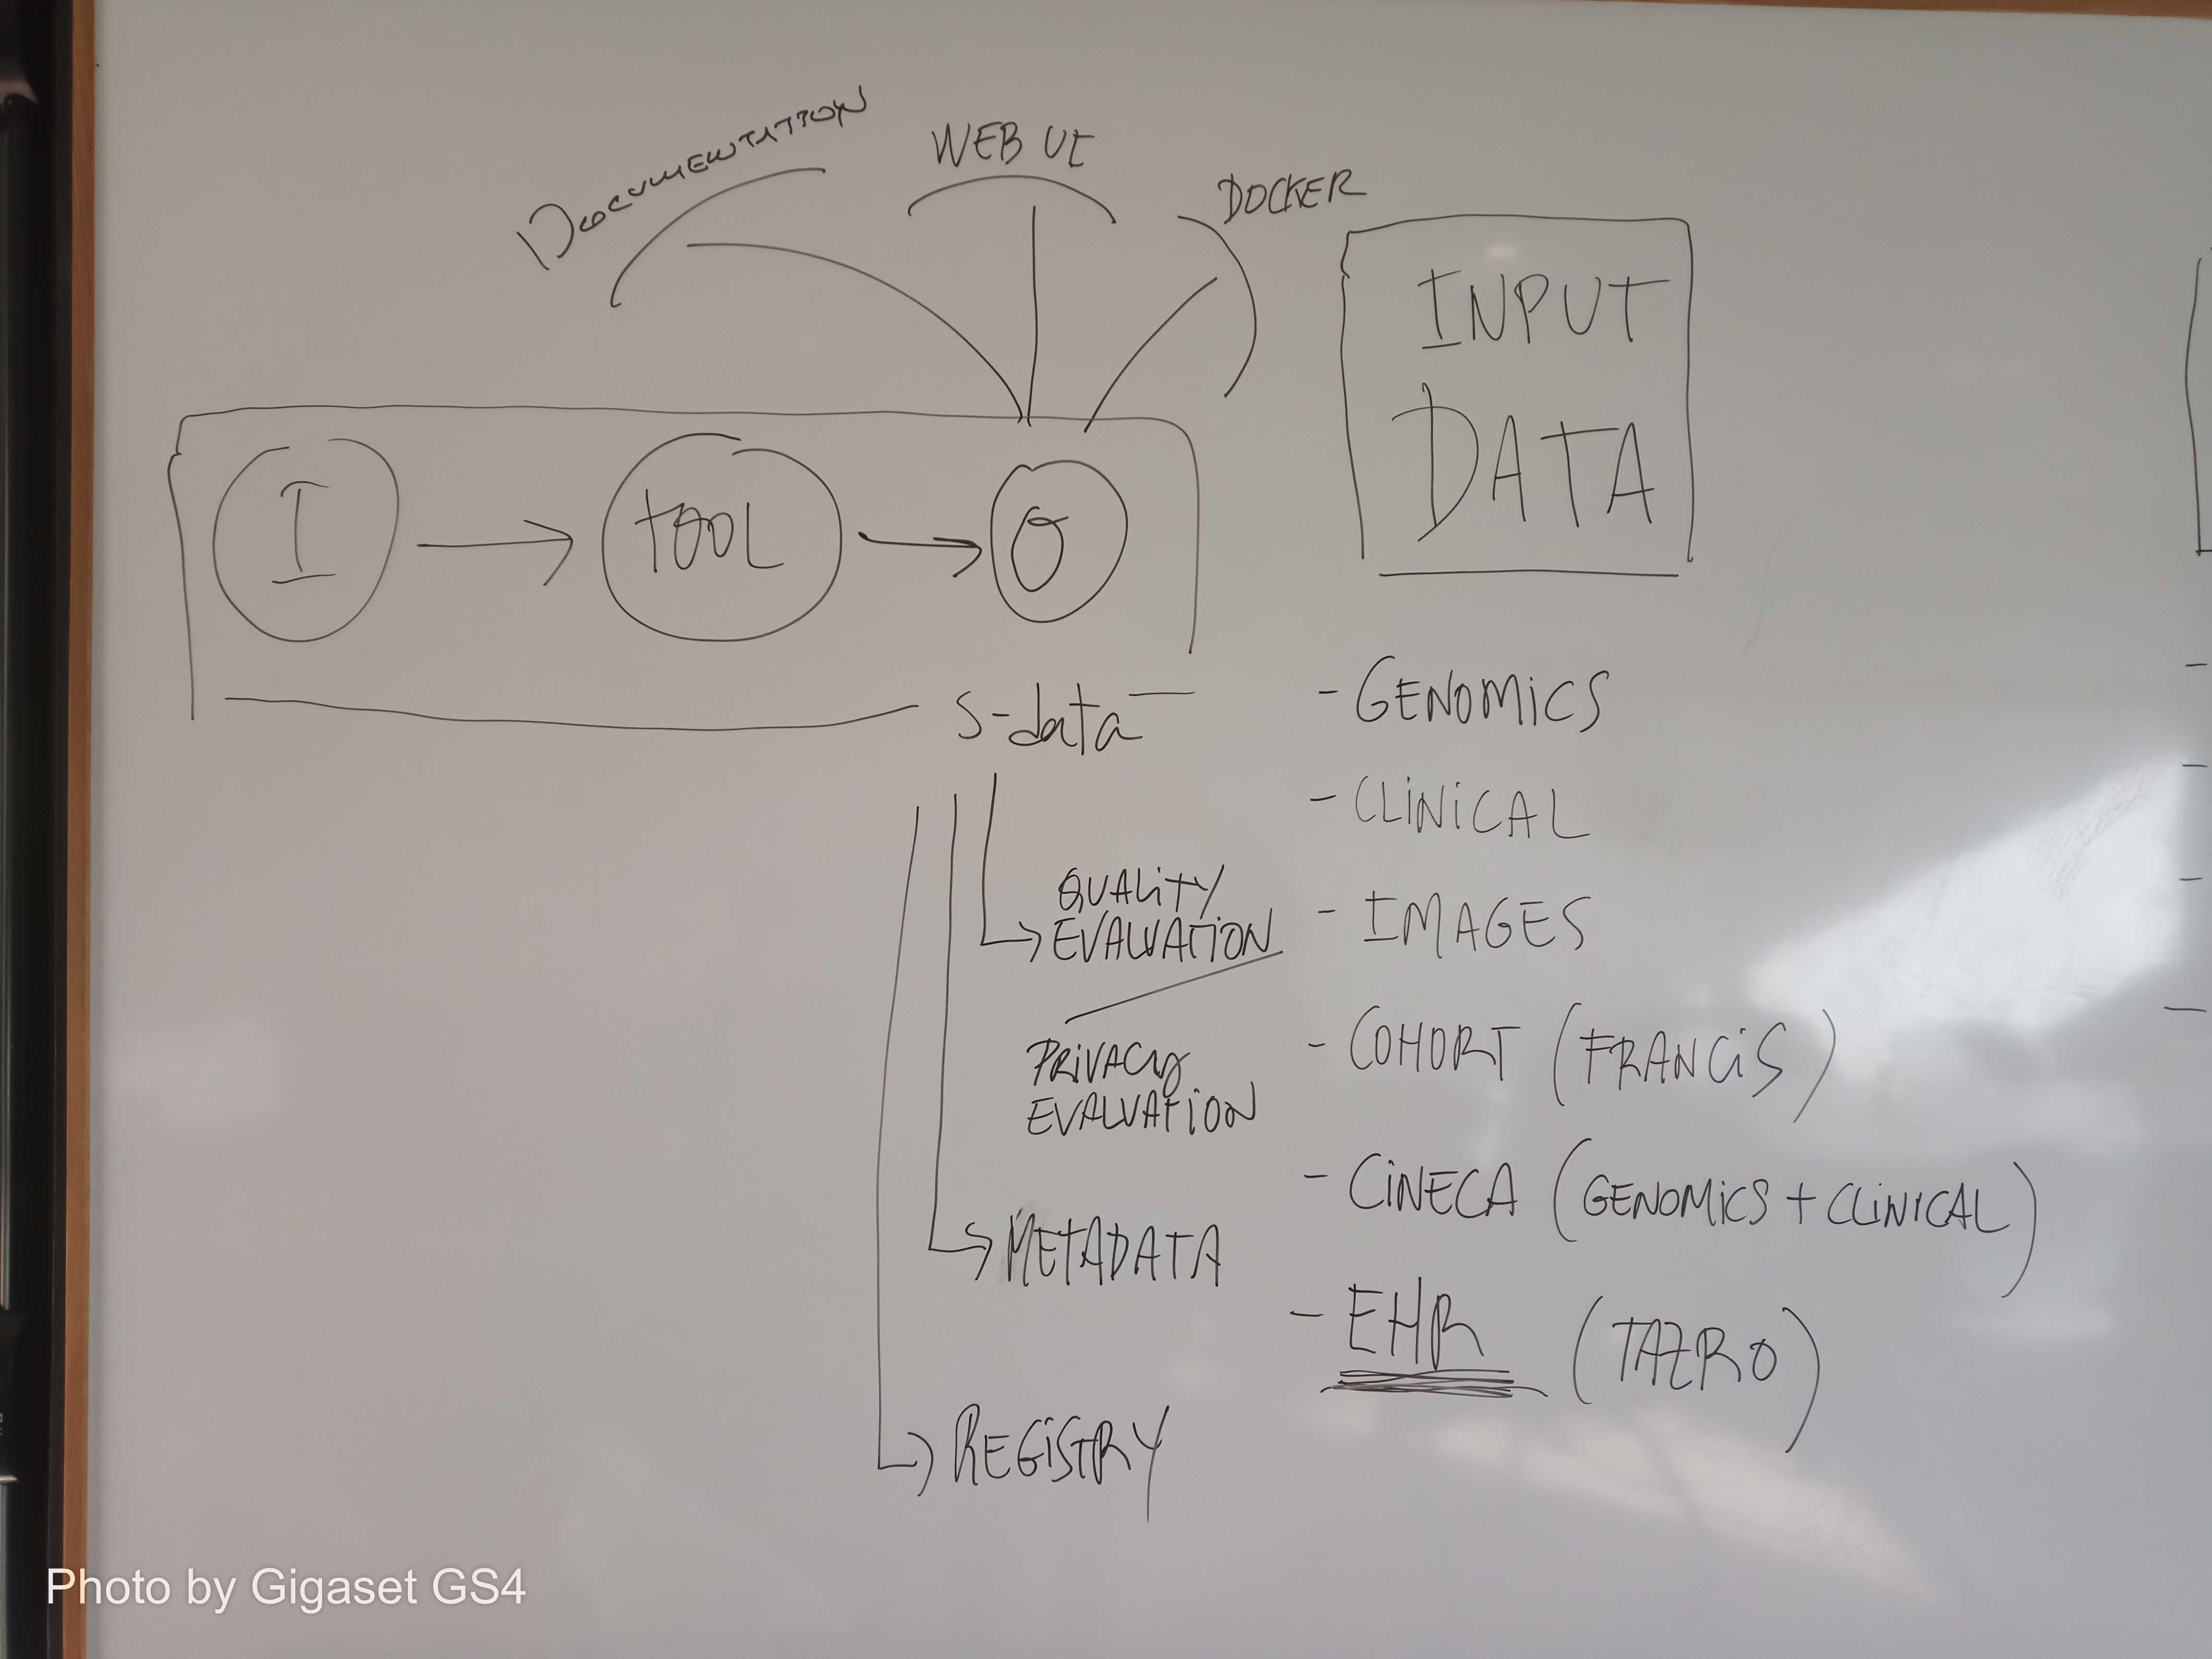 DOCUMENTATION
WEB UI
DOCKER
I
TOOL
O
S-data
QUALITY
EVALUATION
PRIVACY
EVALUATION
METADATA
REGISTRY
INPUT
DATA
- GENOMICS
- CLINICAL
- IMAGES
- COHORT (FRANCIS)
- CINECA (GENOMICS + CLINICAL)
- EHR (TAZRO)
Photo by Gigaset GS4